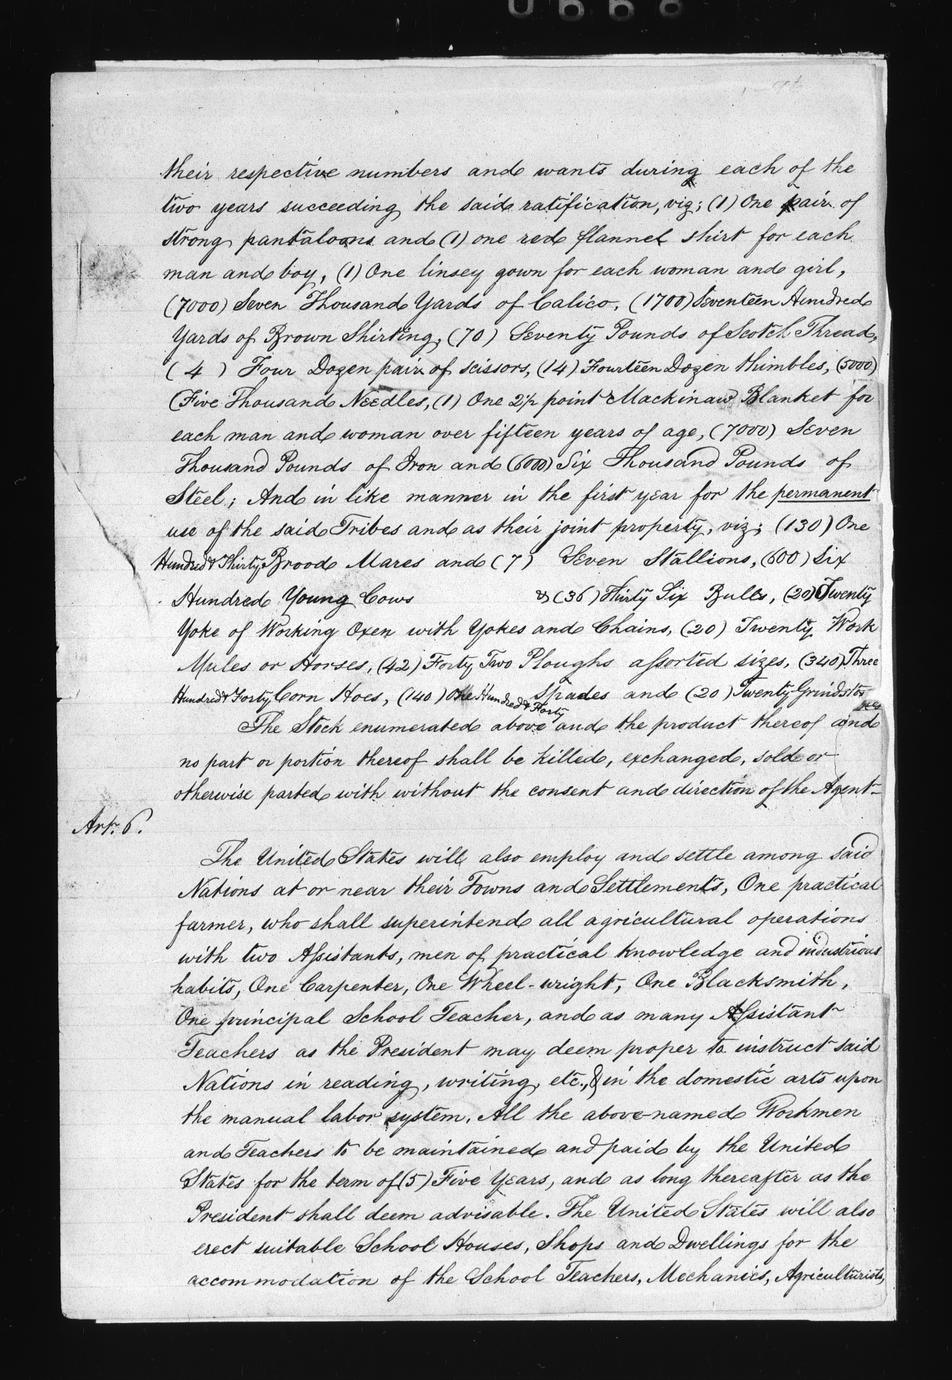 0668
their respective numbers and wants during each of the
two years succeeding the said ratification, viz; (1) One pair of
strong pantaloons and (1) one red flannel shirt for each
man and boy, (1) One linsey gown for each woman and girl,
(7000) Seven Thousand Yards of Calico, (1700) Seventeen Hundred
Yards of Brown Shirting, (70) Seventy Pounds of Scotch Thread,
(4) Four Dozen pair of scissors, (14) Fourteen Dozen thimbles, (5000)
(Five Thousand Needles, (1) One 2½ point Mackinaw Blanket for
each man and woman over fifteen years of age, (7000) Seven
Thousand Pounds of Iron and (6000) Six Thousand Pounds of
Steel; And in like manner in the first year for the permanent
use of the said Tribes and as their joint property, viz; (130) One
Hundred & Thirty Brood Mares and (7) Seven Stallions, (600) Six
Hundred Young Cows & (36) Thirty Six Bulls, (20) Twenty
Yoke of Working Oxen with Yokes and Chains, (20) Twenty Work
Mules or Horses, (42) Forty Two Ploughs assorted sizes, (340) Three
Hundred & Forty Corn Hoes, (140) One Hundred & Forty Spades and (20) Twenty Grindstones
The Stock enumerated above and the product thereof and
no part or portion thereof shall be killed, exchanged, sold or
otherwise parted with without the consent and direction of the Agent
Art. 6.
The United States will also employ and settle among said
Nations at or near their Towns and Settlements, One practical
farmer, who shall superintend all agricultural operations
with two Assistants, men of practical knowledge and industrious
habits, One Carpenter, One Wheel-wright, One Blacksmith,
One principal School Teacher, and as many Assistant
Teachers as the President may deem proper to instruct said
Nations in reading, writing, etc., & in the domestic arts upon
the manual labor system. All the above-named Workmen
and Teachers to be maintained and paid by the United
States for the term of (5) Five Years, and as long thereafter as the
President shall deem advisable. The United States will also
erect suitable School Houses, Shops and Dwellings for the
accommodation of the School Teachers, Mechanics, Agriculturists,